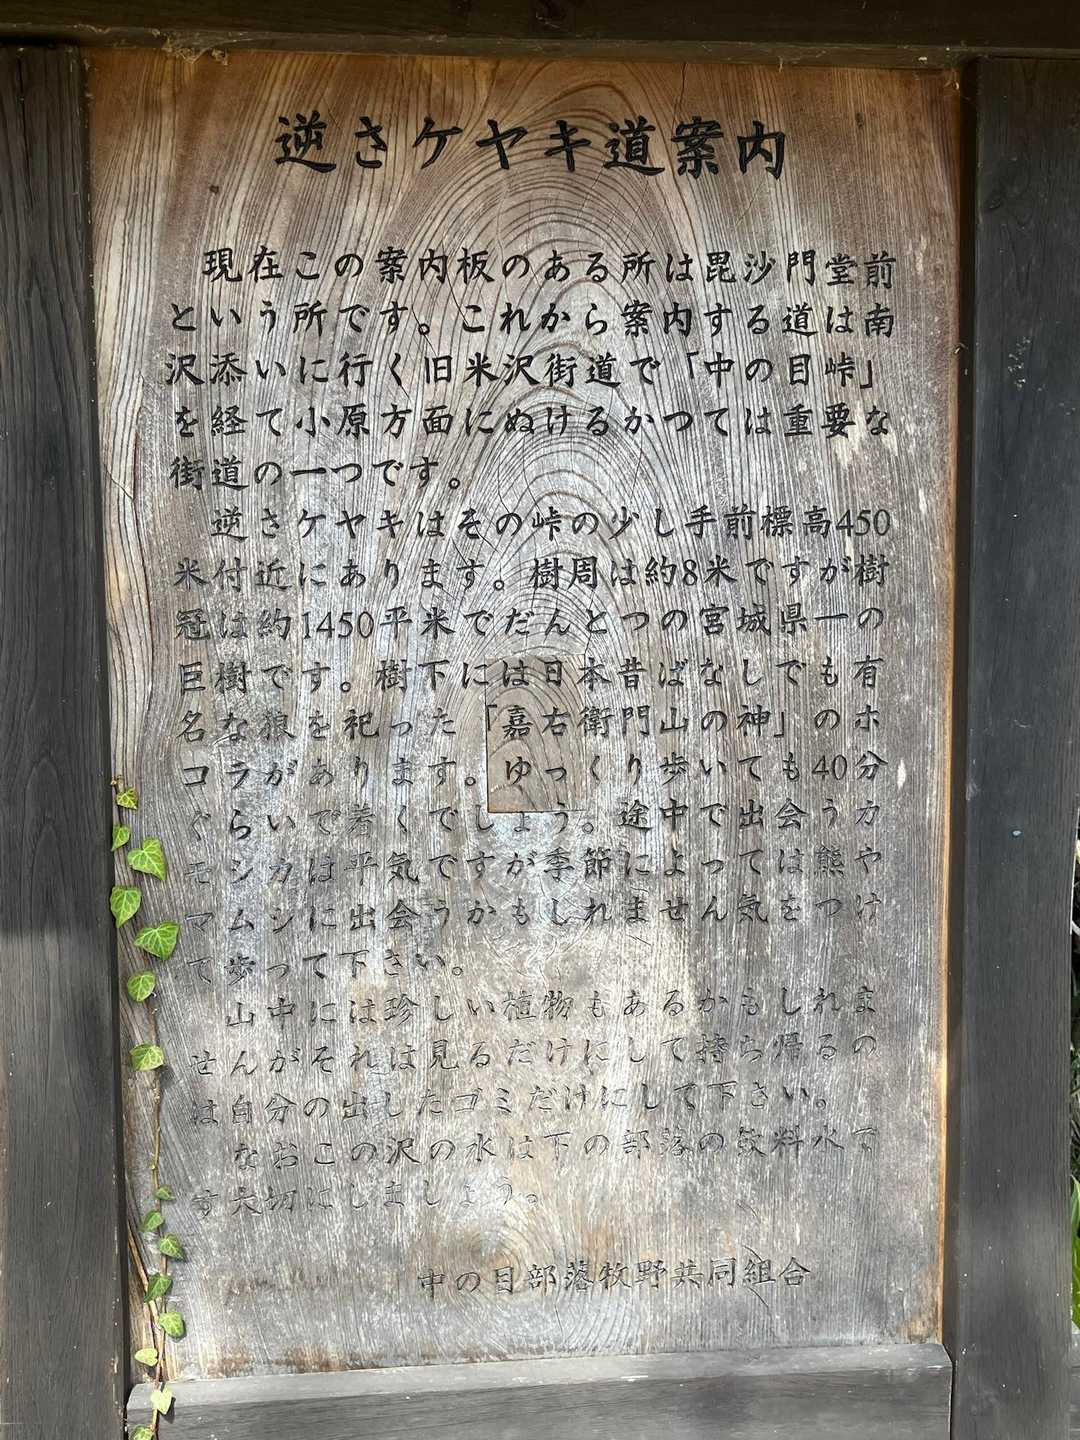 逆さケヤキ道案内
現在この案内板のある所は毘沙門堂前
という所です。これから案内する道は南
沢添いに行く旧米沢街道で「中の目峠」
を経て小原方面にぬけるかつては重要な
街道の一つです。
逆さケヤキはその峠の少し手前標高450
米付近にあります。樹周は約8米ですが樹
冠は約1450平米でだんとつの宮城県一の
巨樹です。樹下には日本昔ばなしでも有
名な狼を祀った「嘉右衛門山の神」のホ
コラがあります。ゆっくり歩いても40分
ぐらいで着くでしょう。途中で出会うカ
モシカは平気ですが季節によっては熊や
マムシに出会うかもしれません気をつけ
て歩って下さい。
山中には珍しい植物もあるかもしれま
せんがそれは見るだけにして持ち帰るの
は自分の出したゴミだけにして下さい。
なおこの沢の水は下の部落の飲料水で
す大切にしましょう。
中の目部落牧野共同組合